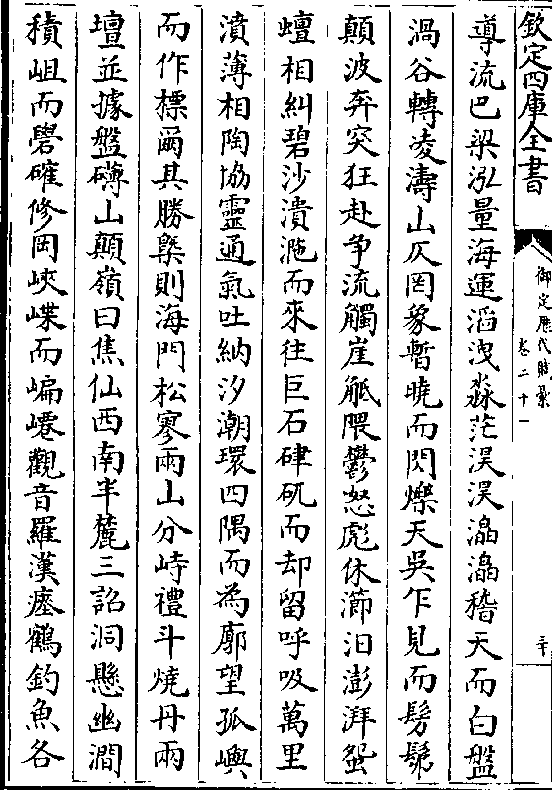 欽定四庫全書
御定歷代賦彙
卷二十一
三十
導流巴梁泓量海運滔洩淼茫淏淏潝潝稽天而白盤
渦谷轉凌濤山仄罔象暫曉而閃爍天吳乍見而髣髴
顛波奔突狂赴争流觸崖觝隈鬱怒彪休滵汩澎湃蛩
蟺相糾碧沙潰沲而來往巨石硉矹而却留呼吸萬里
濆薄相陶協靈通氣吐納汐潮環四隅而為廓望孤嶼
而作標爾其勝槩則海門松寥兩山分峙禮斗燒丹兩
壇並據盤礴山顛嶺曰焦仙西南半麓三詔洞懸幽澗
積岨而礐確修岡峽㠍而㟞嶗觀音羅漢瘞鶴釣魚各